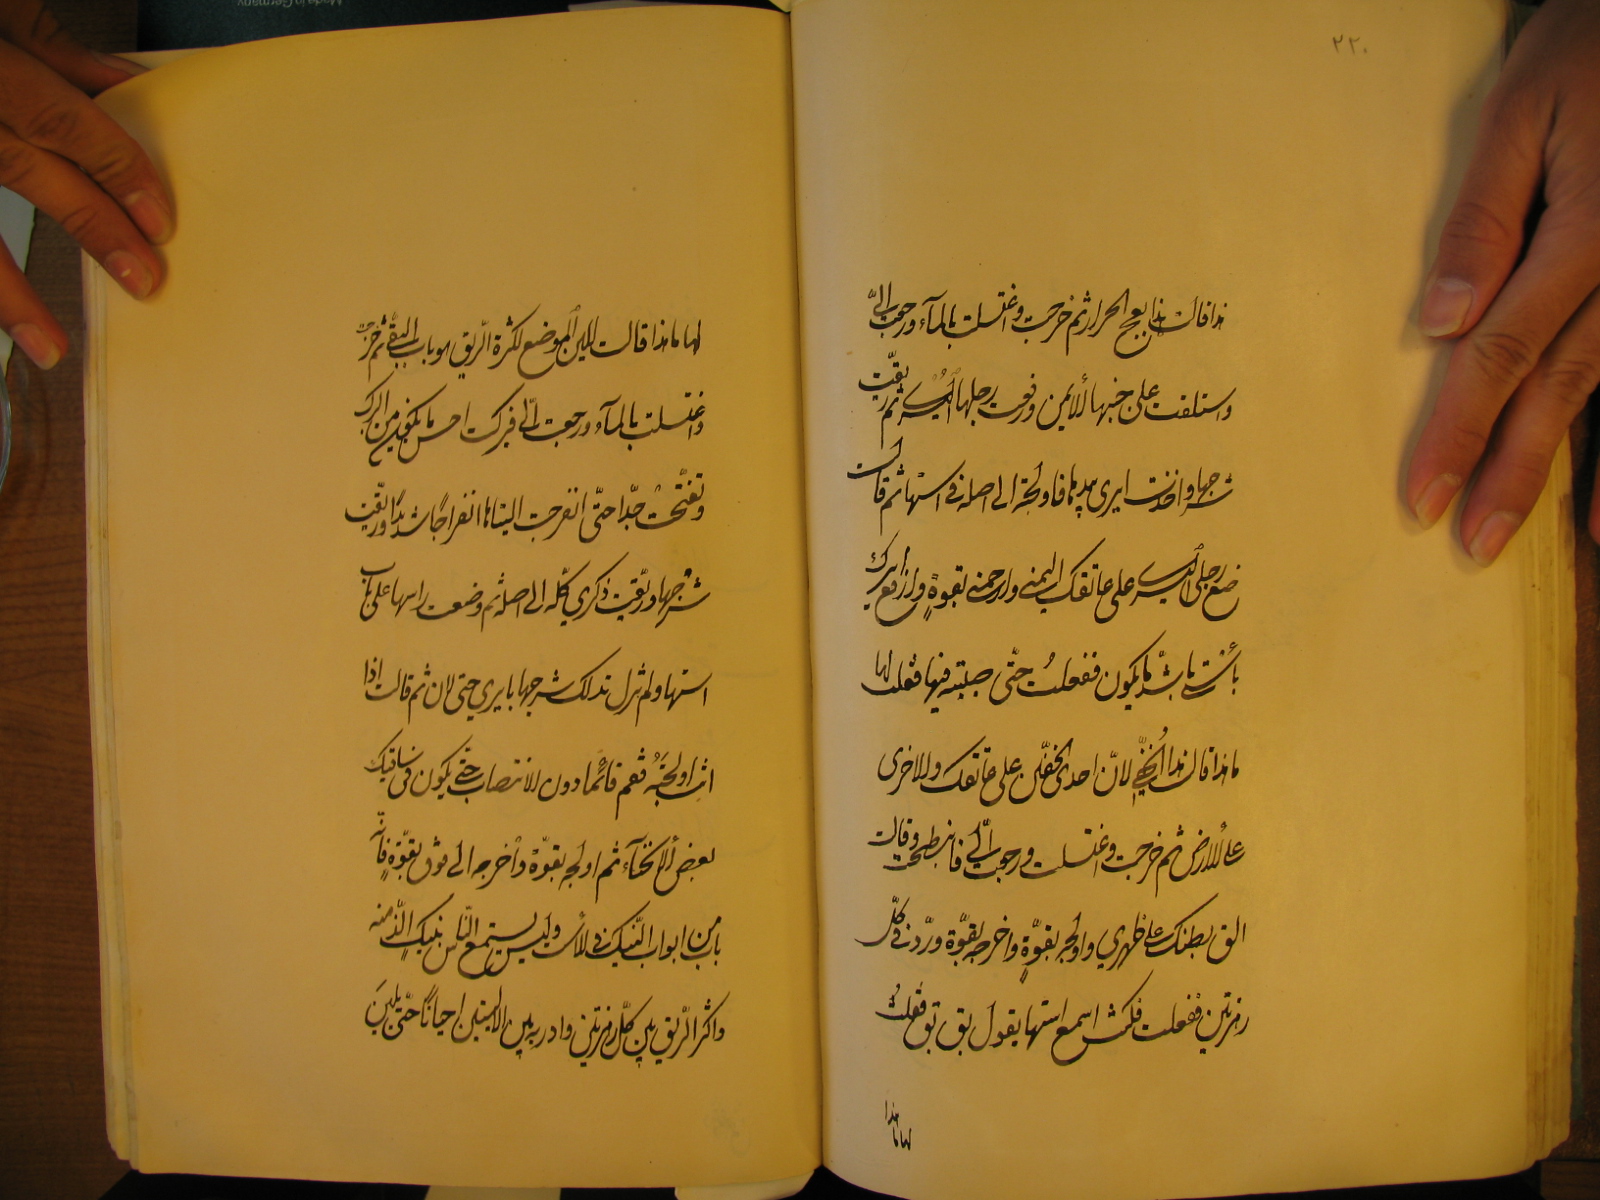 ٢٢٠
هذا قالت هذا بعج الحرار ثم خرجت واغتسلت بالمآء ورجعت الىّ
واستلقت على جنبها الأيمن ورفعت رجلها اليسرى ثم ريّقت
شرجها واخذت ايرى بيدها فاولجته الى اصله فى استها ثم قالت
ضع رجلى اليسرى على عاتقك اليمنى وارحمنى بقوةٍ وارفع ايرك
باستى ما شدّ ما يكون ففعلتُ حتّى صببته فيها فقلت لها
ما هذا قالت هذا لانّ احدى على عاتقك والاخرى
على الأرض ثم خرجت واغتسلت ورجعت الىّ فانبطحت وقالت
الق بطنك على ظهري واولجه بقوّةٍ واخرجه بقوّة وردّه فى كلّ
رهزتين ففعلت فكنت اسمع استها يقول بق بق فقلتُ
لها ما هذا
لها ما هذا قالت للين الموضع لكثرة الرّيق هو باب البقّ ثم خرجت
واغتسلت بالمآء ورجعت الىّ فبركت احسن ما يكون من البرك
وتفتّحت جدّا حتّى انفرجت اليتاها انفراجًا شديدًا وريّقت
شرجها وريّقت ذكري كلّه الى اصله ثم وضعت راسها على باب
استها ولم تزل تدلك شرجها بايري حتى لان ثم قالت اذا
انت اولجته فقم قائما دون الانتصاب حتى يكون فى ساقيك
بعض الانحنآء ثم اولجه بقوّة واخرجه الى فوق بقوّةٍ فانّه
باب من ابواب النّيك فى الاست وليس يستمتع النّاس بنيك الذّ منه
واكثر الرّيق بين كلّ رهزتين وادر بين الاليتين احيانًا حتّى يلين